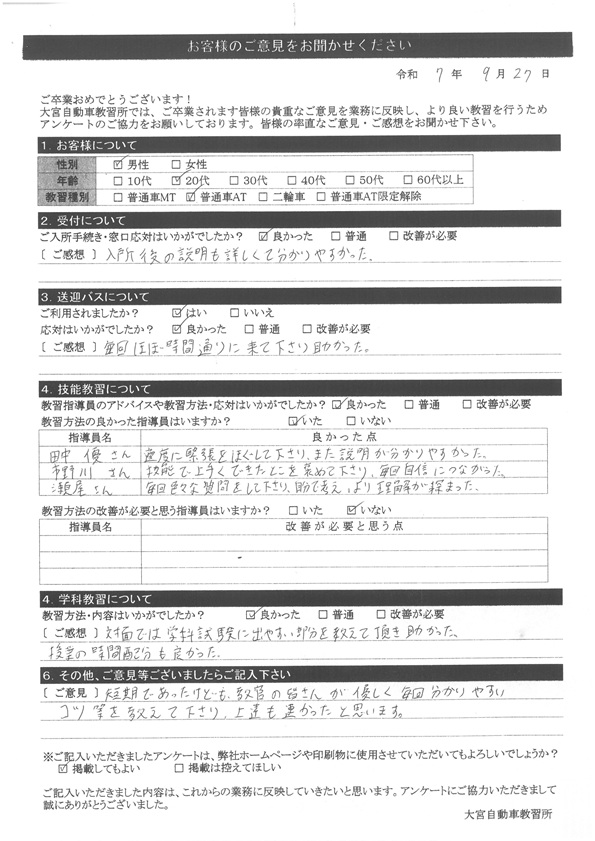 お客様のご意見をお聞かせください
令和 7 年 9 月 27 日
ご卒業おめでとうございます！
大宮自動車教習所では、ご卒業されます皆様の貴重なご意見を業務に反映し、より良い教習を行うため
アンケートのご協力をお願いしております。皆様の率直なご意見・ご感想をお聞かせ下さい。
1. お客様について
性別 ☑ 男性 □ 女性
年齢 □ 10代 ☑ 20代 □ 30代 □ 40代 □ 50代 □ 60代以上
教習種別 □ 普通車MT ☑ 普通車AT □ 二輪車 □ 普通車AT限定解除
2. 受付について
ご入所手続き・窓口応対はいかがでしたか？ ☑ 良かった □ 普通 □ 改善が必要
[ ご感想 ] 入所後の説明も詳しくて分かりやすかった。
3. 送迎バスについて
ご利用されましたか？ ☑ はい □ いいえ
応対はいかがでしたか？ ☑ 良かった □ 普通 □ 改善が必要
[ ご感想 ] 毎回ほぼ時間通りに来て下さり助かった。
4. 技能教習について
教習指導員のアドバイスや教習方法・応対はいかがでしたか？ ☑ 良かった □ 普通 □ 改善が必要
教習方法の良かった指導員はいますか？ ☑ いた □ いない
指導員名 良かった点
田中 優さん 適度に緊張をほぐして下さり、また説明が分かりやすかった。
市野川さん 技能で上手くできたとこを褒めて下さり、毎回自信につながった。
瀬尾さん 毎回色々な質問をして下さり、自分で考え、より理解が深まった。
教習方法の改善が必要と思う指導員はいますか？ □ いた ☑ いない
指導員名 改善が必要と思う点
4. 学科教習について
教習方法・内容はいかがでしたか？ ☑ 良かった □ 普通 □ 改善が必要
[ ご感想 ] 対面では学科試験に出やすい部分を教えて頂き助かった。
授業の時間配分も良かった。
6. その他、ご意見等ございましたらご記入下さい
[ ご意見 ] 短期であったけども、教官の皆さんが優しく毎回分かりやすい
コツ等を教えて下さり、上達も早かったと思います。
※ご記入いただきましたアンケートは、弊社ホームページや印刷物に使用させていただいてもよろしいでしょうか？
☑ 掲載してもよい □ 掲載は控えてほしい
ご記入いただきました内容は、これからの業務に反映していきたいと思います。アンケートにご協力いただきまして
誠にありがとうございました。
大宮自動車教習所